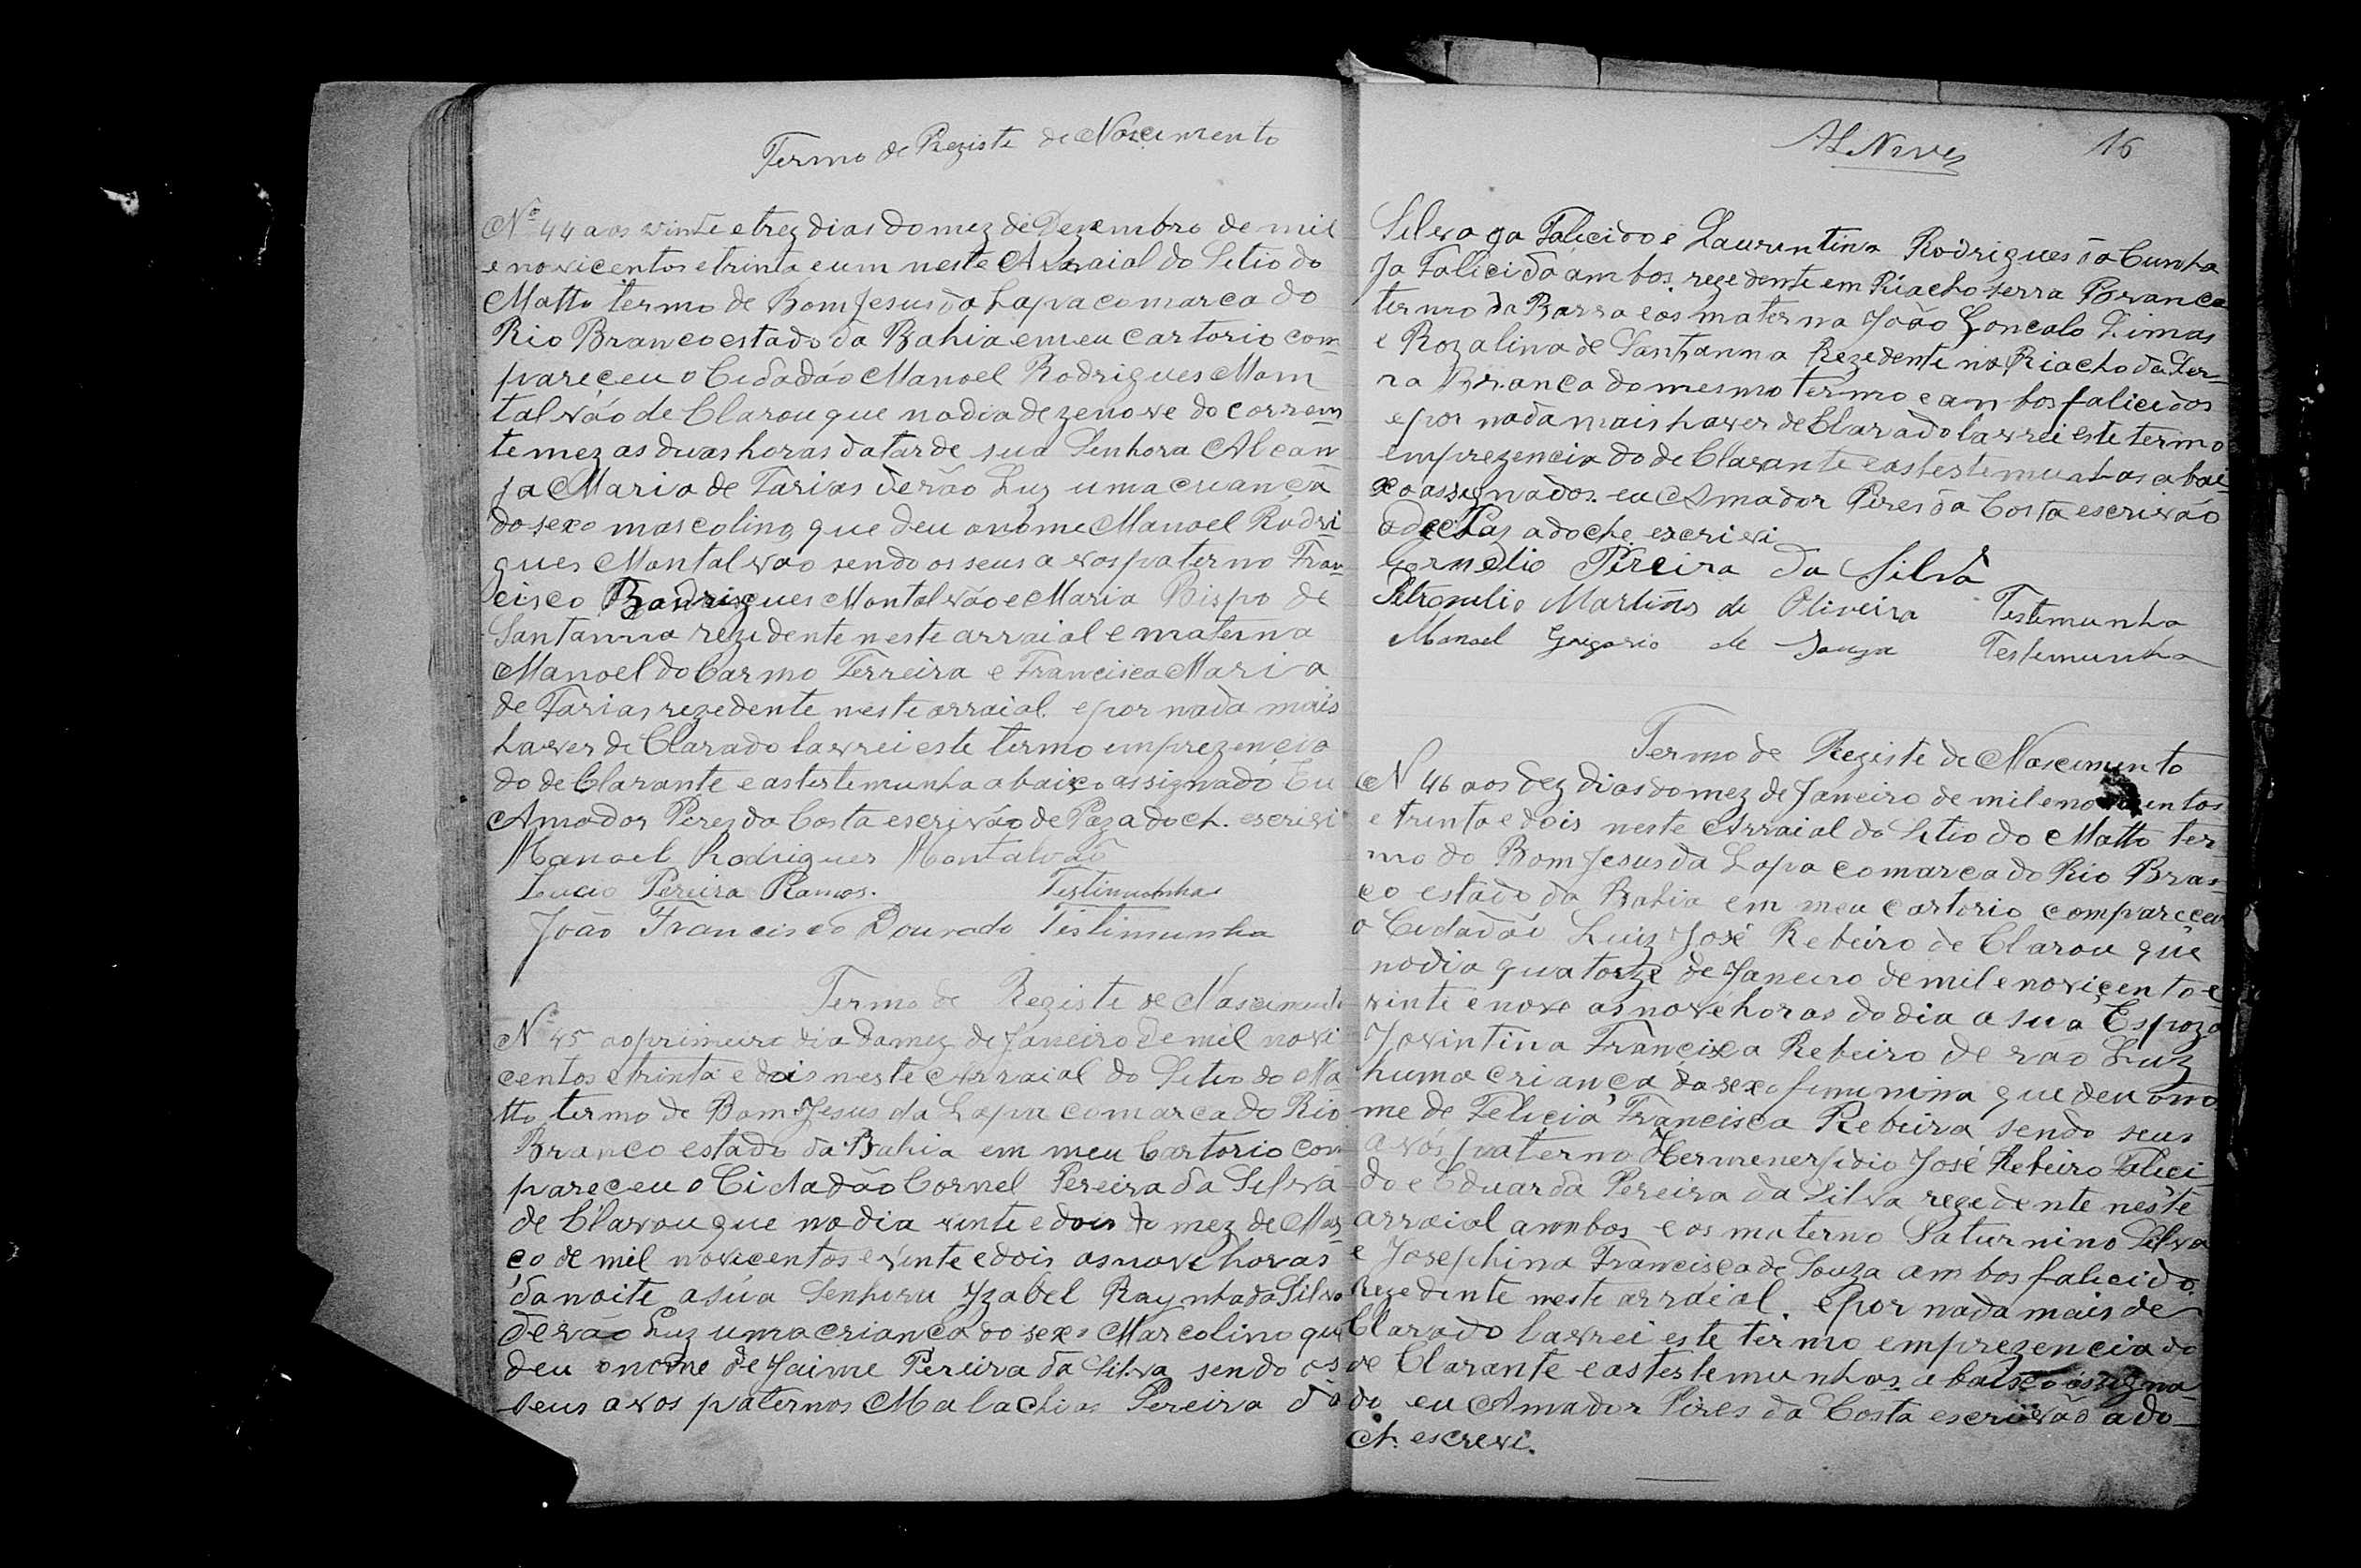 Termo de Registe de Nascimento
Nº 44 aos vinte e trez dias do mez de Dezembro de mil
e novicentos e trinta e um neste Arraial do Sitio do
Matto termo de Bom Jesus da Lapa comarca do
Rio Branco estado da Bahia em eu cartorio com-
pareceu o Cidadão Manoel Rodrigues Mom
talvão de Clarou que no dia dezenove do corren-
te mez as duas horas da tarde sua Senhora Alcan
ja Maria de Farias derão Luz uma criança
do sexo mascolino que deu o nome Manoel Rodri-
gues Montalvão sendo os seus avos paterno Fran-
cisco Rodrigues Montalvão e Maria Bispo de
Santanna rezidente neste arraial e materna
Manoel do Carmo Ferreira e Francisca Maria
de Farias rezedente neste arraial e por nada mais
haver de Clarado lavrei este termo em prezencia
do de Clarante e as testemunha abaixo assignado Eu
Amador Perez da Costa escrivão de Paz adoch. escrivi
Manoel Rodrigues Montalvão
Lucio Pereira Ramos. Testimunha
João Francisco Dourado Testimunha
Termo de Registe de Nascimento
Nº 45 ao primeiro dia do mez de Janeiro de mil novi
centos e trinta e dois neste Arraial do Setio do Ma
tto termo de Bom Jesus da Lapa comarca do Rio
Branco estado da Bahia em meu Cartorio com
pareceu o Cidadão Cornel Pereira da Silva
de Clarou que no dia vinte e dois do mez de Mar-
ço de mil novicentos e vinte e dois as nove horas
da noite a súa Senhora Yzabel Raynha da Silva
derão Luz uma criança do sexo Marcolino que
deu o nome de Jaime Pereira da Silva sendo os
seus avos paternos Malachias Pereira da
AL Neves 16
Silva ja Falicido e Laurintina Rodrigues da Cunha
Ja Falicida ambos rezedente em Riacho Serra Branca
termo da Barra e os materna João Gonçalo Limas
e Rozalina de Santanna Rezedente no Riacho da Ser-
ra Branca do mesmo termo e ambos falicidos
e por nada mais haver de Clarado lavrei este termo
em prezencia do de Clarante e as testemunhas abai-
xo assignados. eu Amador Pires da Costa escrivão
de Paz adoche escrivi
Cornelio Pereira da Silva
Petronilio Martins de Oliveira Testemunha
Manoel Gregorio de Souza Testemunha
Termo de Registe de Nascimento
N 46 aos dez dias do mez de Janeiro de mil e novicentos
e trinta e dois neste Arraial do Setio do Matto ter-
mo do Bom Jesus da Lapa comarca do Rio Bran-
co estado da Bahia em meu cartorio compareceu
o Cidadão Luiz José Rebeiro de Clarou que
no dia quatorze de Janeiro de mil e noviçento e
vinte e nove as nove horas do dia a sua Espoza
Jovintina Francisca Rebeiro de rão Luz
huma criança do sexo feminina que deu o no
me de Felicia Francisca Rebeira sendo seus
avós paterno Hermenersidio José Rebeiro Falici-
do e Eduarda Pereira da Silva rezedente neste
arraial ambos e os materno Saturnino Silva
e Josephina Francisca de Souza ambos falicido
Rezedente neste arraial. e por nada mais de
Clarado lavrei este termo em prezencia do
de Clarante e as testemunhas abaixo assigna-
do eu Amador Pires da Costa escrivão ado-
ch. escrevi.